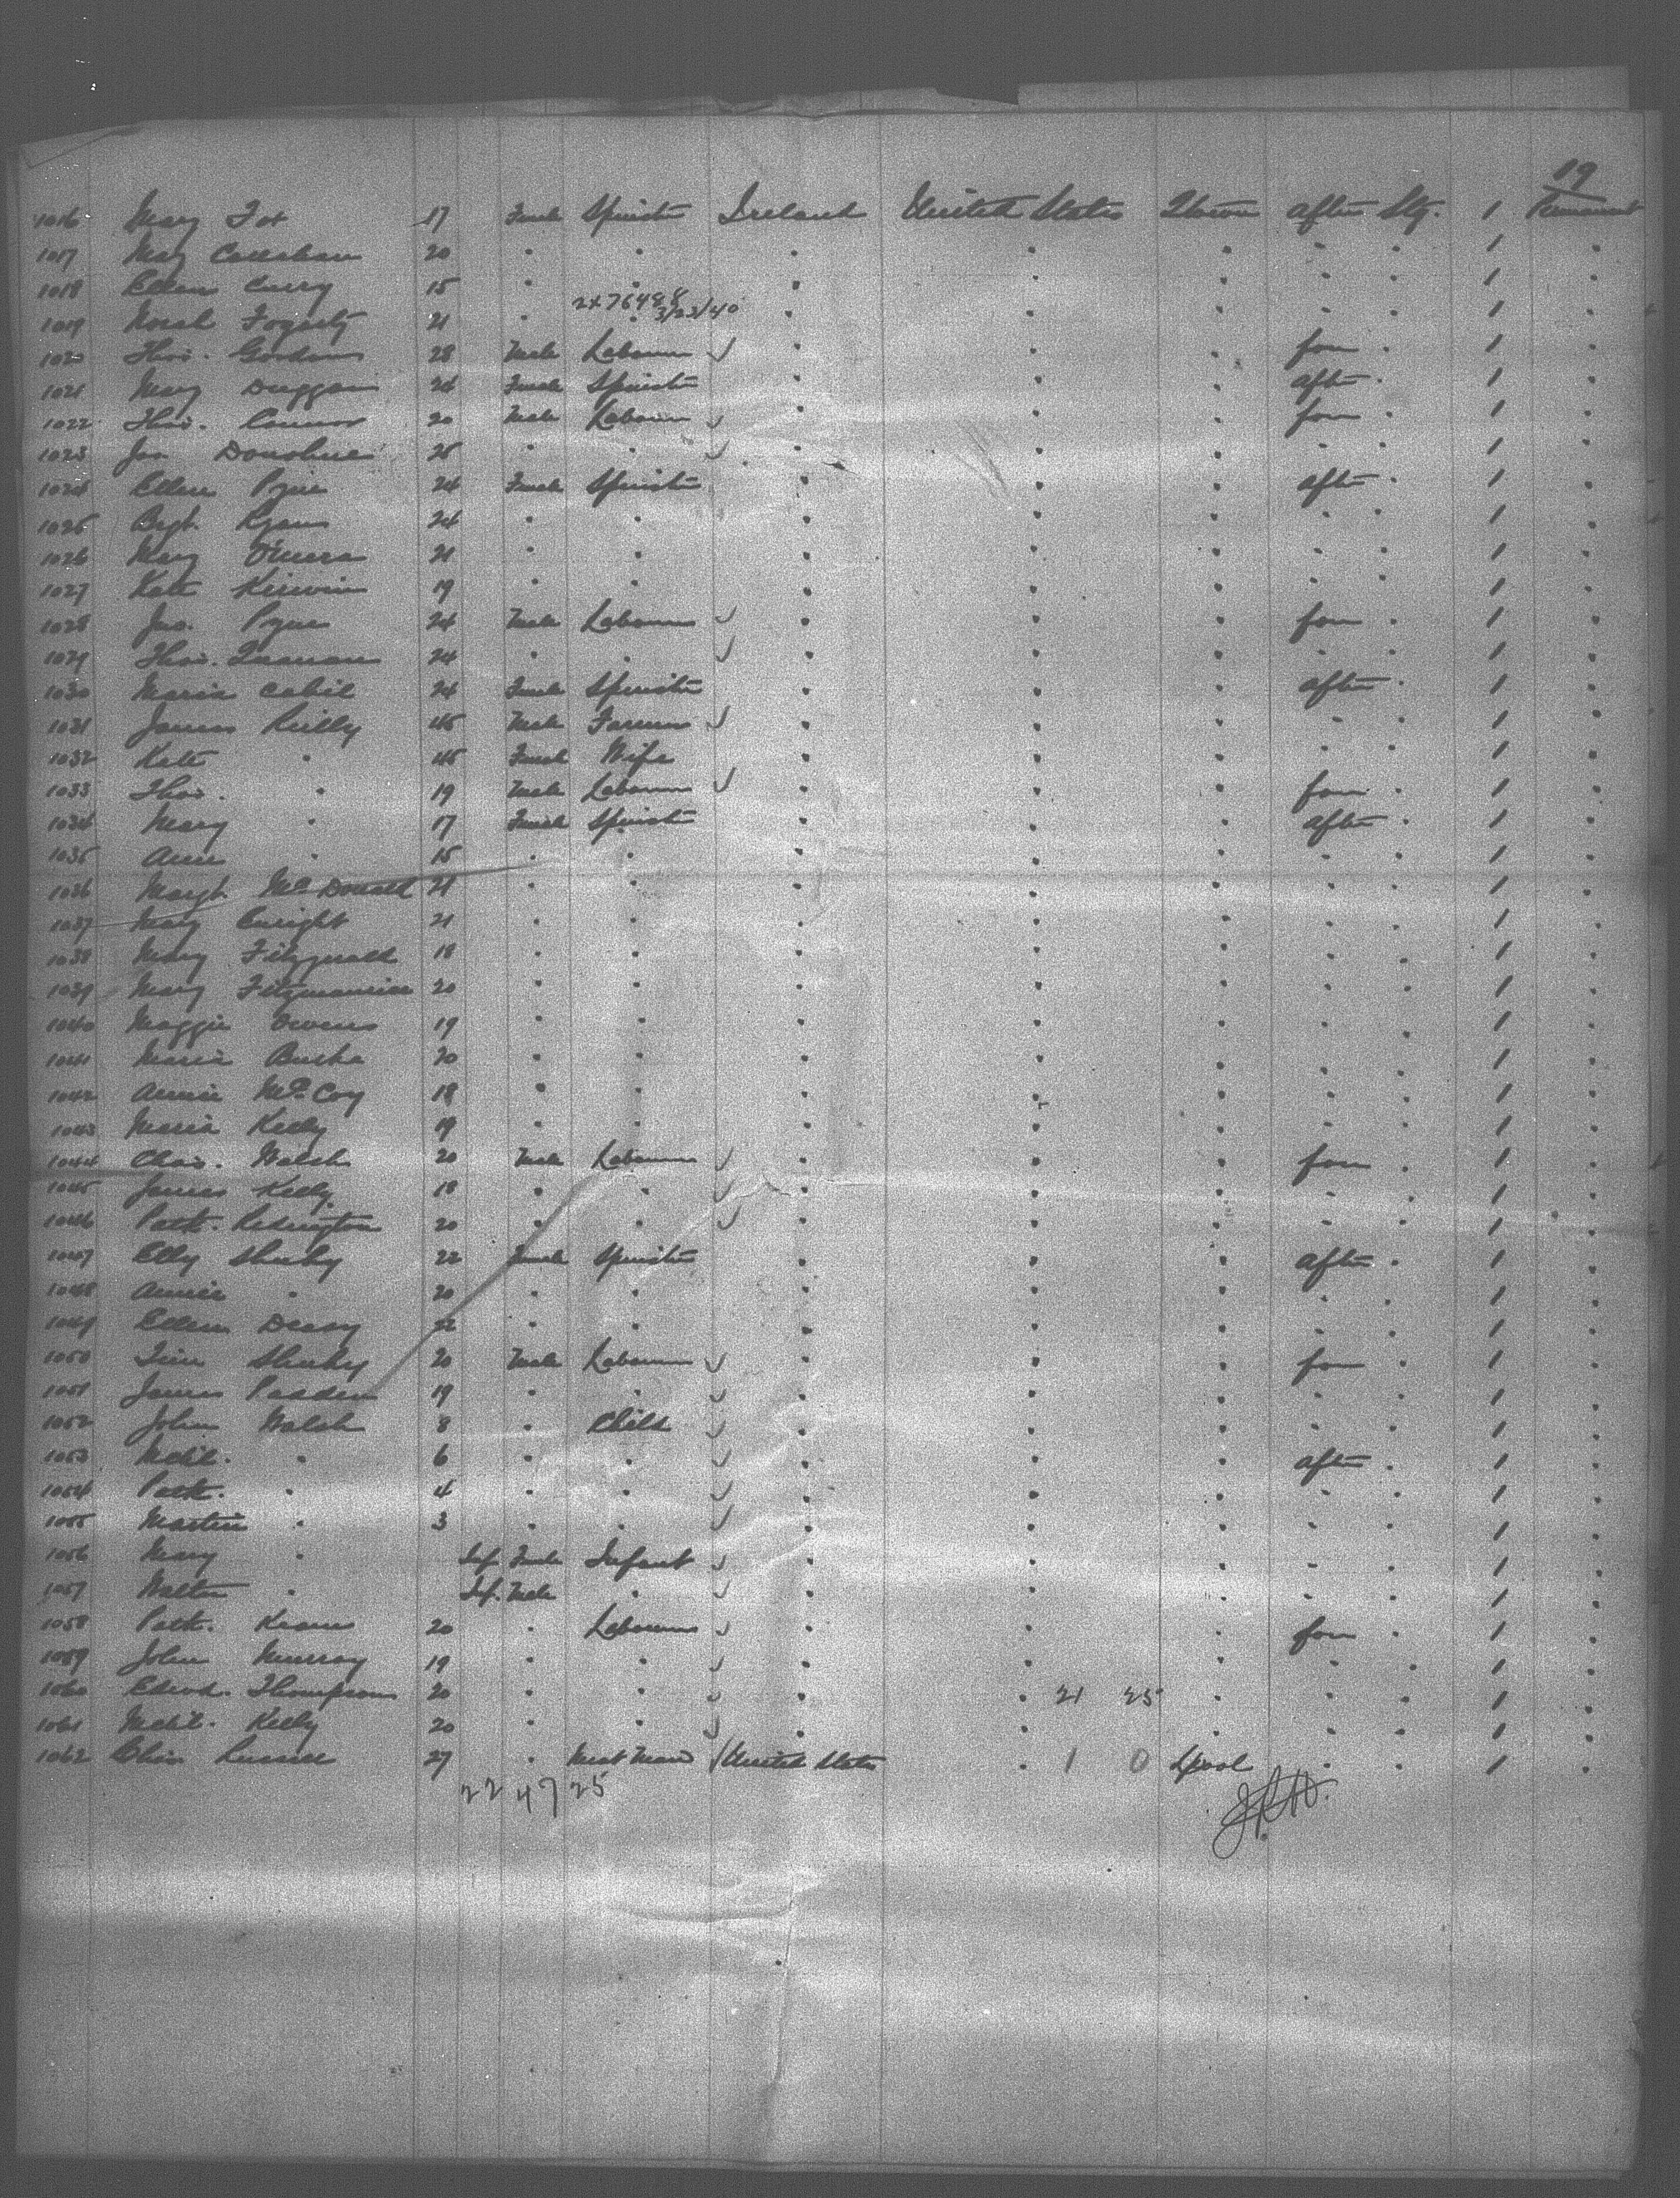 19
1016 Mary Fox 17 Female Spinster Ireland United States Qtown after Stg. 1 Permanent
1017 Mary Callahan 20 " " " " " " " 1 "
1018 Ellen Curry 15 " " " " " " " 1 "
2x76488 3/23/40
1019 Norah Fogarty 21 " " " " " " " 1 "
1020 Thos. Gordon 28 Male Labourer ✓ " " " fore " 1 "
1021 Mary Duggan 24 Female Spinster " " " after " 1 "
1022 Thos. Connor 20 Male Labourer ✓ " " " fore " 1 "
1023 Jas Donohue 25 " " ✓ " " " " " 1 "
1024 Ellen Pyne 24 Female Spinster " " " after " 1 "
1025 Bgt. Ryan 24 " " " " " " " 1 "
1026 Mary O'Meara 21 " " " " " " " 1 "
1027 Kate Kirwin 19 " " " " " " " 1 "
1028 Jno. Pyne 24 Male Labourer ✓ " " " fore " 1 "
1029 Thos. 24 " " ✓ " " " " " 1 "
1030 Maria Cahil 24 Female Spinster " " " after " 1 "
1031 James Reilly 45 Male Farmer ✓ " " " " " 1 "
1032 Kate " 45 Female Wife " " " " " 1 "
1033 Thos. " 19 Male Labourer ✓ " " " fore " 1 "
1034 Mary " 17 Female Spinster " " " after " 1 "
1035 Ann " 15 " " " " " " " 1 "
1036 Margt. McDonald 21 " " " " " " " 1 "
1037 Mary Enright 21 " " " " " " " 1 "
1038 Mary Fitzgerald 18 " " " " " " " 1 "
1039 Mary Fitzmaurice 20 " " " " " " " 1 "
1040 Maggie Owens 19 " " " " " " " 1 "
1041 Maria Burke 20 " " " " " " " 1 "
1042 Annie McCoy 18 " " " " " " " 1 "
1043 Maria Kelly 19 " " " " " " " 1 "
1044 Chas. Walsh 20 Male Labourer ✓ " " " fore " 1 "
1045 James Kelly 18 " " ✓ " " " " " 1 "
1046 Patk. Redington 20 " " ✓ " " " " " 1 "
1047 Elly Sheehy 22 Female Spinster " " " after " 1 "
1048 Annie " 20 " " " " " " " 1 "
1049 Ellen Deasy 22 " " " " " " " 1 "
1050 Tim Sheehy 20 Male Labourer ✓ " " " fore " 1 "
1051 James Padden 19 " " ✓ " " " " " 1 "
1052 John Walsh 8 " Child ✓ " " " " " 1 "
1053 Michl. " 6 " " ✓ " " " after " 1 "
1054 Patk. " 4 " " ✓ " " " " " 1 "
1055 Martin " 3 " " ✓ " " " " " 1 "
1056 Mary " Inf. Female Infant ✓ " " " " " 1 "
1057 Walter " Inf. Male " ✓ " " " " " 1 "
1058 Patk. Keane 20 " Labourer ✓ " " " fore " 1 "
1059 John Murray 19 " " ✓ " " " " " 1 "
1060 Edwd. Thompson 20 " " ✓ " " 21 25 " " " 1 "
1061 Michl. Kelly 20 " " ✓ " " " " " 1 "
1062 Chas Russell 27 " United States " 1 0 Lpool " " 1 "
22 47 25